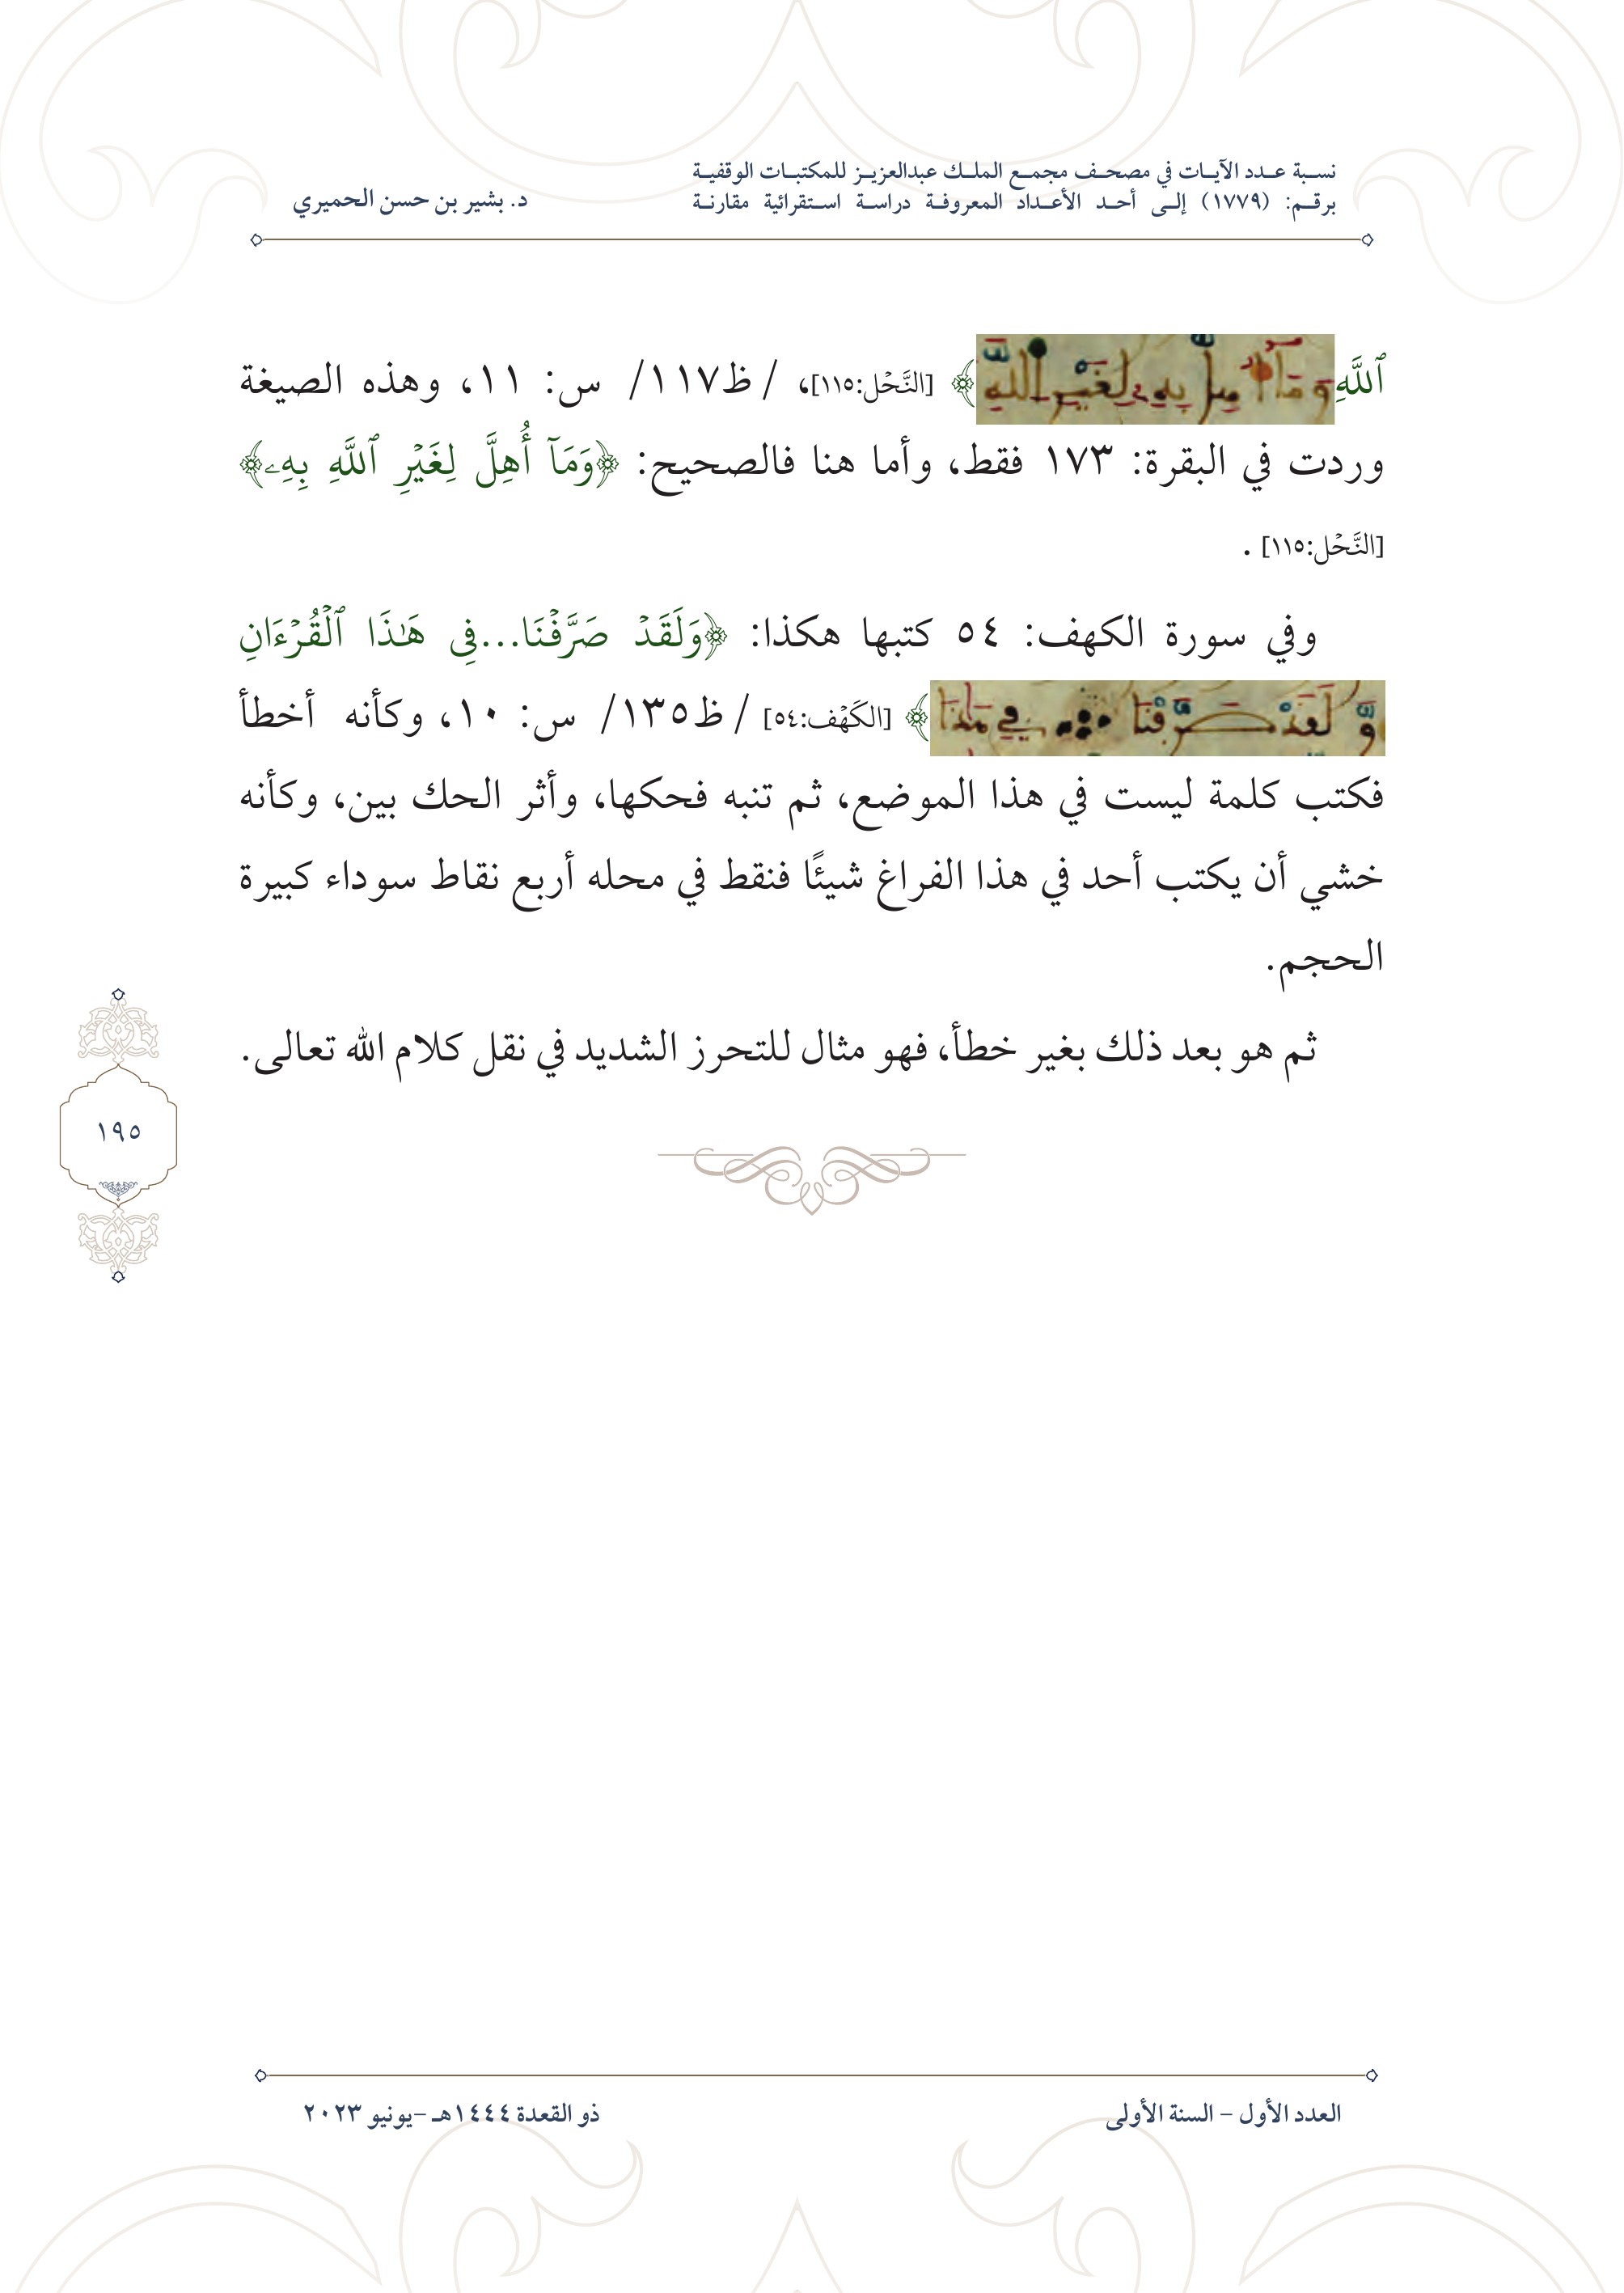 نسبة عدد الآيات في مصحف مجمع الملك عبدالعزيز للمكتبات الوقفية
برقم: (١٧٧٩) إلى أحد الأعداد المعروفة دراسة استقرائية مقارنة
د. بشير بن حسن الحميري
ٱللَّهِ وَمَا أُهِلَّ بِهِ لِغَيْرِ اللَّهِ﴾ [النَّحۡل:١١٥]، / ظ١١٧/ س: ١١، وهذه الصيغة
وردت في البقرة: ١٧٣ فقط، وأما هنا فالصحيح: ﴿وَمَآ أُهِلَّ لِغَيۡرِ ٱللَّهِ بِهِۦ﴾
[النَّحۡل:١١٥] .
وفي سورة الكهف: ٥٤ كتبها هكذا: ﴿وَلَقَدۡ صَرَّفۡنَا...فِى هَٰذَا ٱلۡقُرۡءَانِ
وَلَقَدْ صَرَّفْنَا في هَٰذَا﴾ [الكَهۡف:٥٤] / ظ١٣٥/ س: ١٠، وكأنه أخطأ
فكتب كلمة ليست في هذا الموضع، ثم تنبه فحكها، وأثر الحك بين، وكأنه
خشي أن يكتب أحد في هذا الفراغ شيئًا فنقط في محله أربع نقاط سوداء كبيرة
الحجم.
ثم هو بعد ذلك بغير خطأ، فهو مثال للتحرز الشديد في نقل كلام الله تعالى.
١٩٥
العدد الأول – السنة الأولى
ذو القعدة ١٤٤٤هـ –يونيو ٢٠٢٣